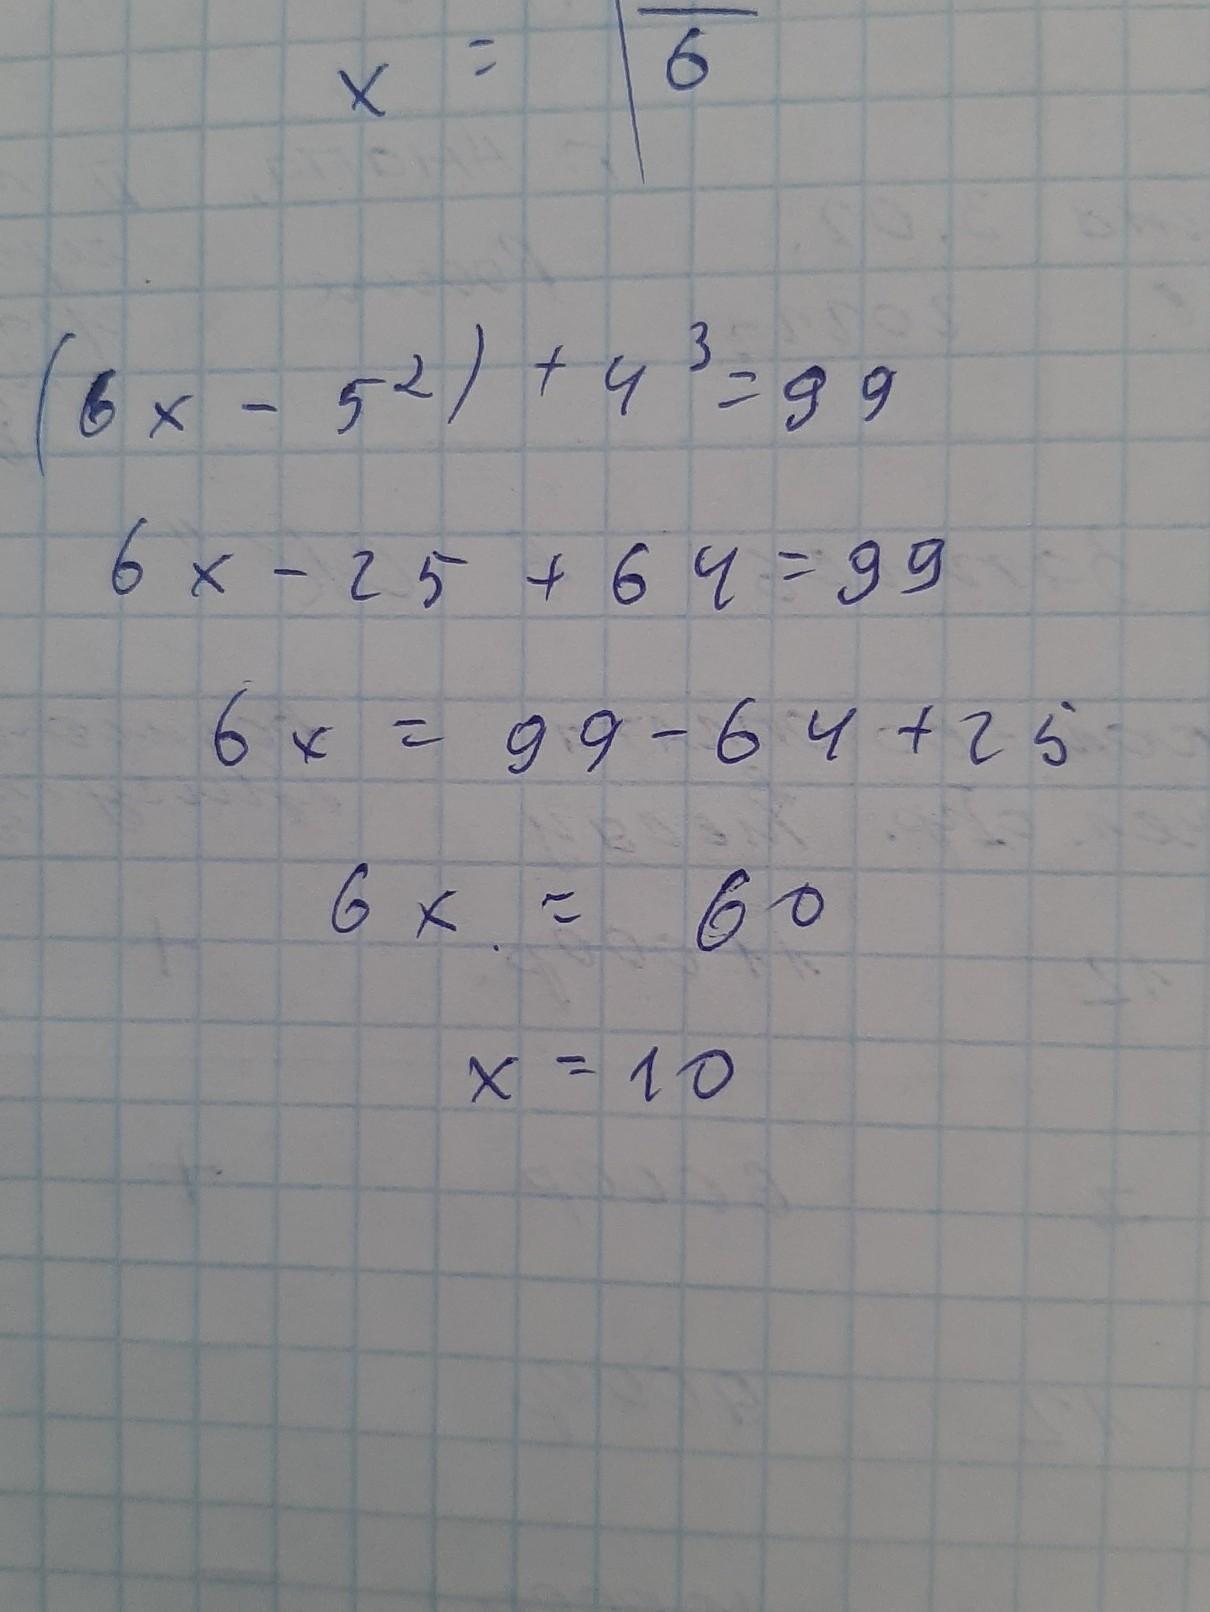 x = | 6
(6x - 5²) + 4³ = 99
6x - 25 + 64 = 99
6x = 99 - 64 + 25
6x = 60
x = 10